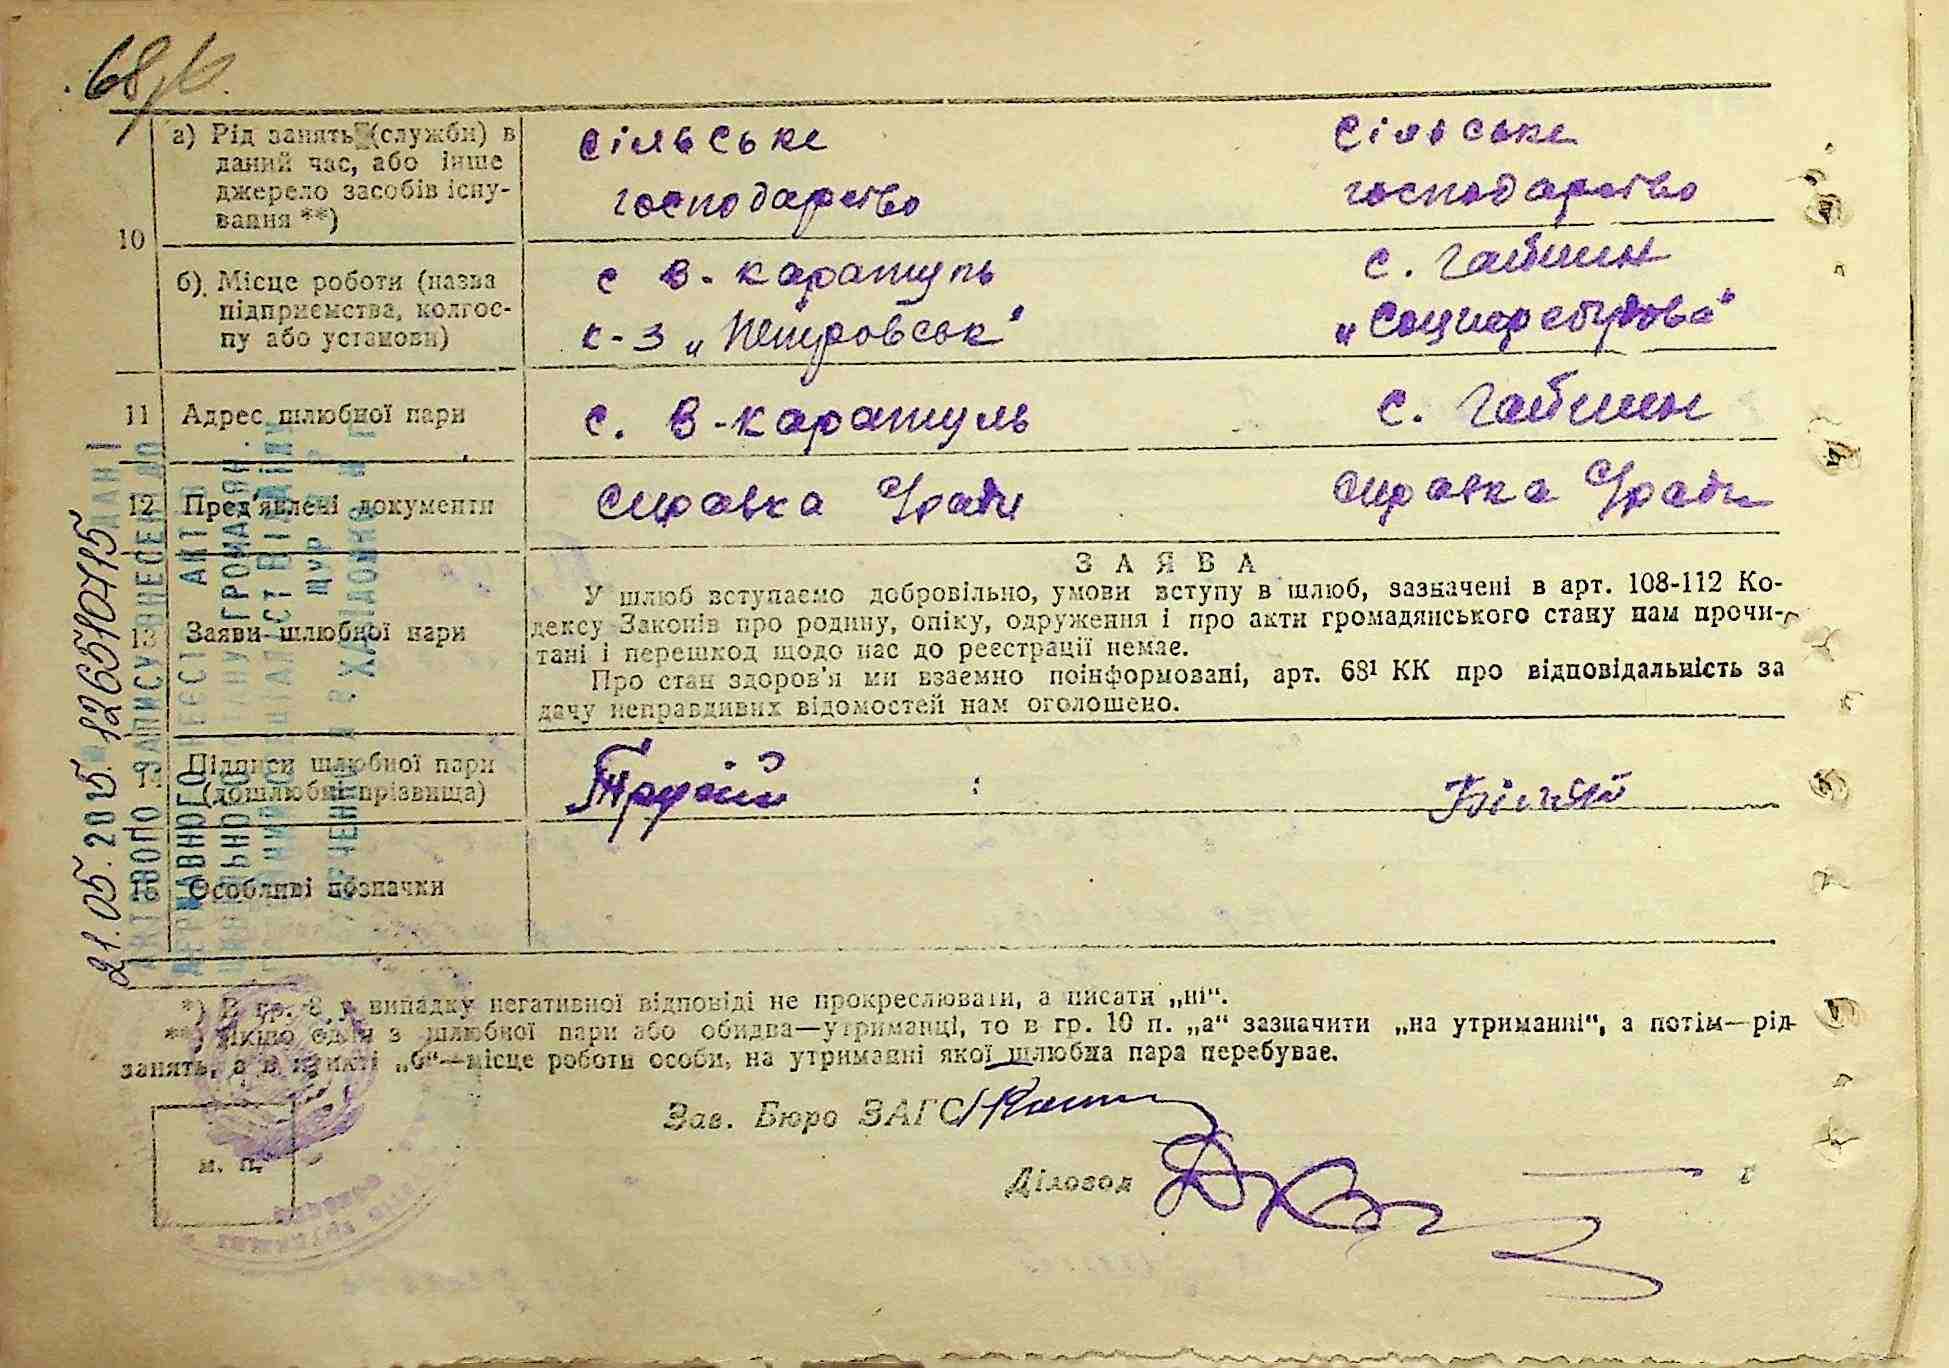 68
10
а) Рід занять (служби) в даний час, або інше джерело засобів існування **)
сільське
господарство
сільське
господарство
б). Місце роботи (назва підприємства, колгоспу або установи)
с В-каратуль
к-з „Петровськ"
с. Гайшин
„Соцперебудова"
11
Адрес шлюбної пари
с. В-каратуль
с. Гайшин
12
Пред'явлені документи
справка с/ради
справка с/ради
13
Заяви шлюбної пари
ЗАЯВА
У шлюб вступаємо добровільно, умови вступу в шлюб, зазначені в арт. 108-112 Ко-
дексу Законів про родину, опіку, одруження і про акти громадянського стану нам прочи-
тані і перешкод щодо нас до реєстрації немає.
Про стан здоров'я ми взаємно поінформовані, арт. 68¹ КК про відповідальність за
дачу неправдивих відомостей нам оголошено.
14
Підписи шлюбної пари
(дошлюбні прізвища)
15
Особливі позначки
*) В гр. 8 у випадку негативної відповіді не прокреслювати, а писати „ні".
**) Якщо один з шлюбної пари або обидва—утриманці, то в гр. 10 п. „а" зазначити „на утриманні", а потім—рід
занять, а в пункті „б"—місце роботи особи, на утриманні якої шлюбна пара перебуває.
Зав. Бюро ЗАГС
Діловод
м. п.
21.05.2015 12651070715